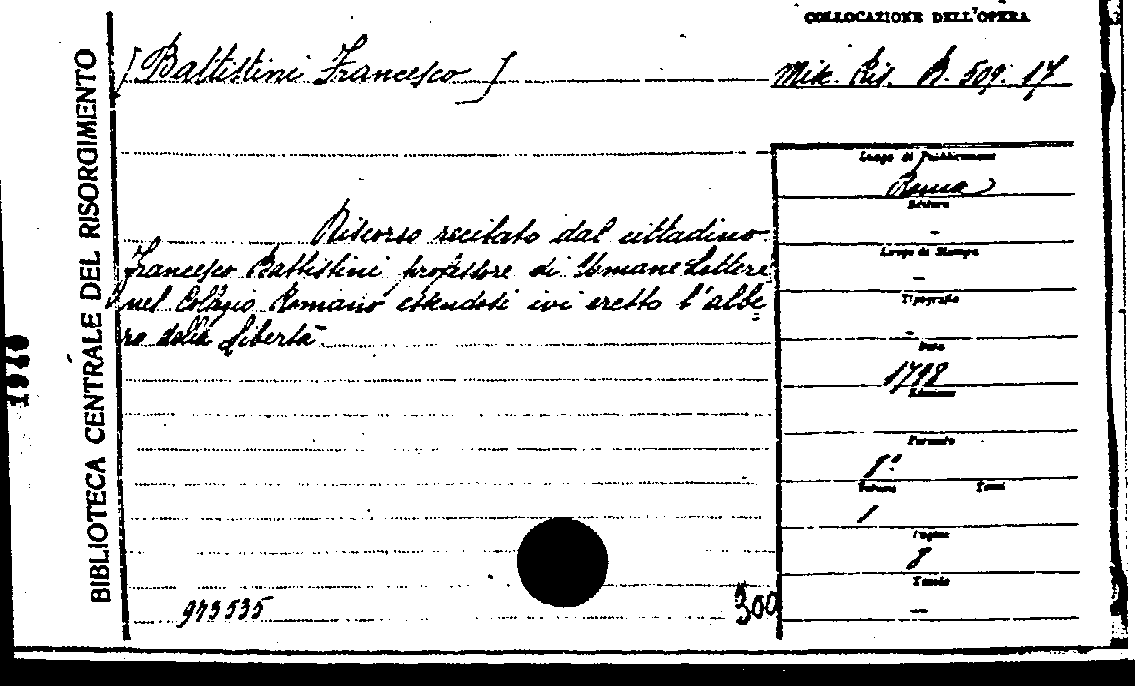 COLLOCAZIONE DELL'OPERA
[Battistini Francesco]
Misc. Ris. B. 509. 17
BIBLIOTECA CENTRALE DEL RISORGIMENTO
Luogo di Pubblicazione
Roma
Editore
-
Luogo di Stampa
-
Tipografia
-
Data
1798
Edizione
Formato
8°
Volumi Tomi
1
Pagine
8
Tavole
-
Discorso recitato dal cittadino
Francesco Battistini professore di Umane Lettere
nel Collegio Romano essendosi ivi eretto l'albe=
ro della Libertà.
973535
300